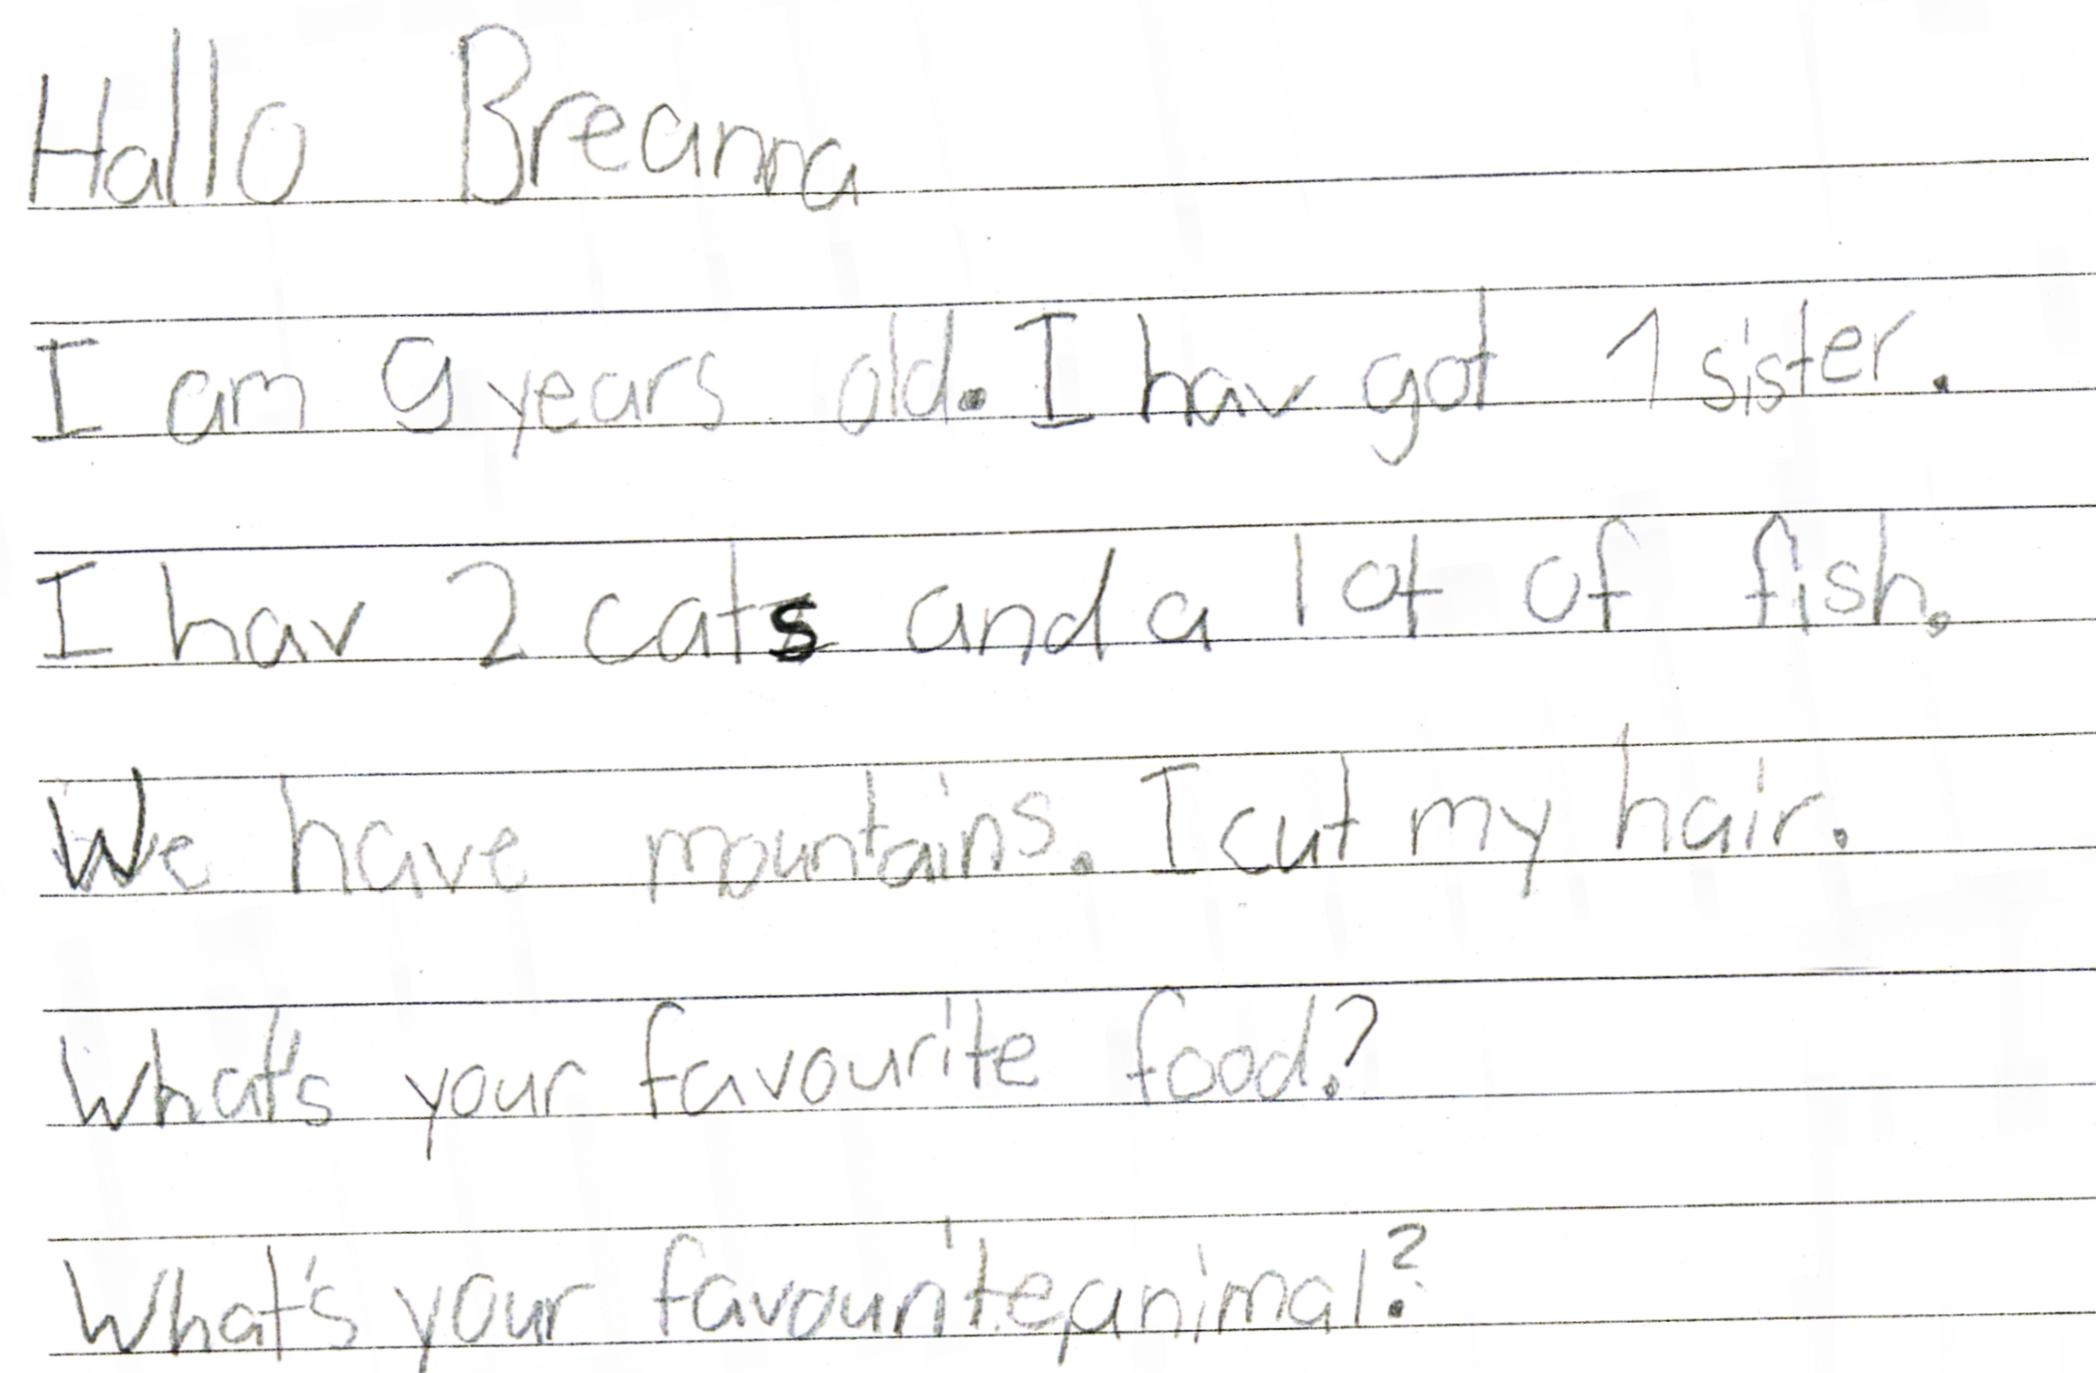 Hallo Breanna
I am 9 years old. I hav got 1 sister.
I hav 2 cats and a lot of fish.
We have mountains. I cut my hair.
What's your favourite food?
What's your favourite animal?